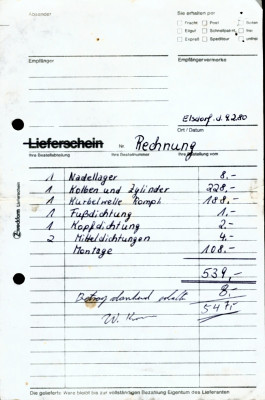 Sie erhalten per
Fracht Post
Eilgut Schnellpaket
Expreß Spediteur
Empfänger Empfängervermerke
Elsdorf, d. 9.2.80
Ort / Datum
Lieferschein Nr. Rechnung
Ihre Bestellabteilung Ihre Bestellnummer Ihre Bestellung vom
1 Nadellager 8,-
1 Kolben und Zylinder 228,-
1 Kurbelwelle kompl. 188,-
1 Fußdichtung 1,-
1 Kopfdichtung 2,-
2 Mitteldichtungen 4,-
Montage 108,-
539,-
8,-
Betrag dankend erhalten 547,-
W.
Zweckform Lieferschein
Die gelieferte Ware bleibt bis zur vollständigen Bezahlung Eigentum des Lieferanten